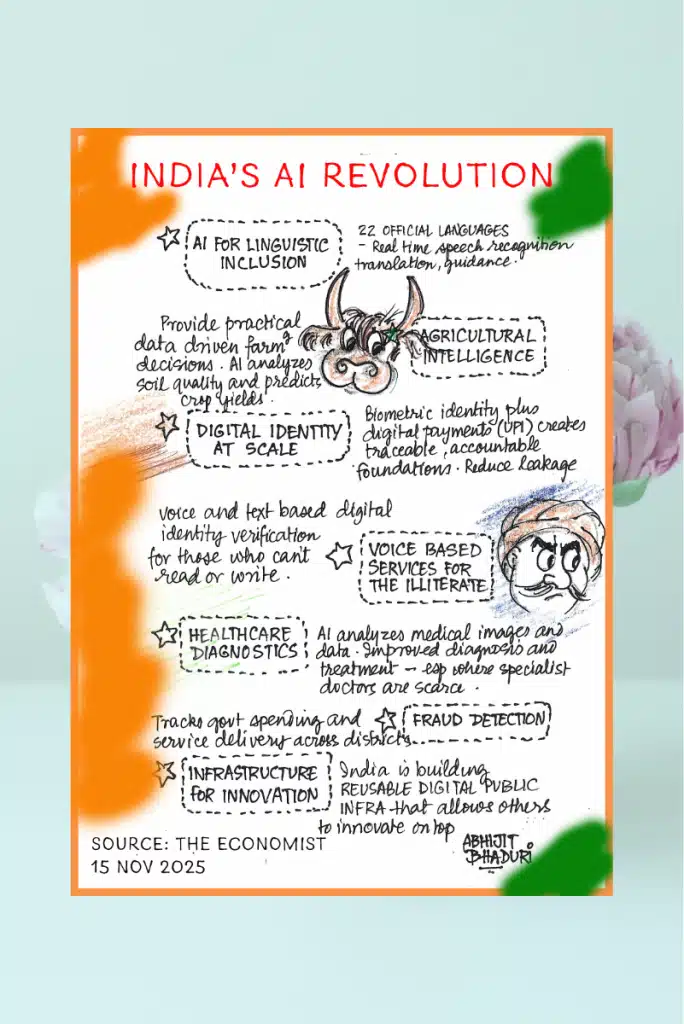 INDIA'S AI REVOLUTION
AI FOR LINGUISTIC
INCLUSION
22 OFFICIAL LANGUAGES
- Real time speech recognition
translation, guidance.
Provide practical
data driven farmg
decisions. AI analyzes
soil quality and predicts
crop yields.
AGRICULTURAL
INTELLIGENCE
DIGITAL IDENTITY
AT SCALE
Biometric identity plus
digital payments (UPI) creates
traceable, accountable
foundations. Reduce leakage
voice and text based digital
identity verification
for those who can't
read or write.
VOICE BASED
SERVICES FOR
THE ILLITERATE
HEALTHCARE
DIAGNOSTICS
AI analyzes medical images and
data. Improved diagnosis and
treatment - esp where specialist
doctors are scarce.
Tracks govt spending and
service delivery across districts
FRAUD DETECTION
INFRASTRUCTURE
for INNOVATION
India is building
REUSABLE DIGITAL PUBLIC
INFRA that allows others
to innovate on top
SOURCE: THE ECONOMIST
15 NOV 2025
ABHIJIT
BHADURI